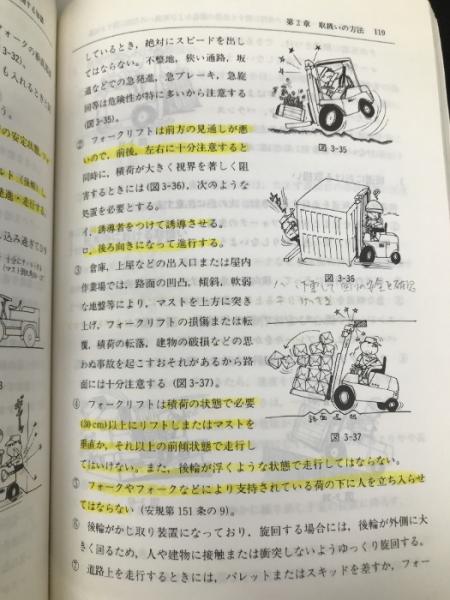 第2章 取扱いの方法 119
しているとき，絶対にスピードを出し
てはならない。不整地，狭い通路，坂
道などでの急発進，急ブレーキ，急旋
回等は危険性が特に多いから注意する
(図3-35)。
② フォークリフトは前方の見通しが悪
いので，前後，左右に十分注意すると
同時に，積荷が大きく視界を著しく阻
害するときには(図3-36)，次のような
処置を必要とする。
イ．誘導者をつけて誘導させる。
ロ．後ろ向きになって進行する。
③ 倉庫，上屋などの出入口または屋内
作業場では，路面の凹凸，傾斜，軟弱
な地盤等により，マストを上方に突き
上げ，フォークリフトの損傷または転
覆，積荷の転落，建物の破損などの思
わぬ事故を起こすおそれがあるから路
面には十分注意する(図3-37)。
④ フォークリフトは積荷の状態で必要
(30cm)以上にリフトしまたはマストを
垂直か，それ以上の前傾状態で走行し
てはいけない。また，後輪が浮くような状態で走行してはならない。
⑤ フォークやフォークなどにより支持されている荷の下に人を立ち入らせ
てはならない(安規第151条の9)。
⑥ 後輪がかじ取り装置になっており，旋回する場合には，後輪が外側に大
きく回るため，人や建物に接触または衝突しないようゆっくり旋回する。
⑦ 道路上を走行するときには，パレットまたはスキッドを差すか，フォー
図3-35
図3-36
図3-37
フォークの
3-32)。
も入れるときは
の安定状態，フ
ルト(後傾)し，
発進・走行する